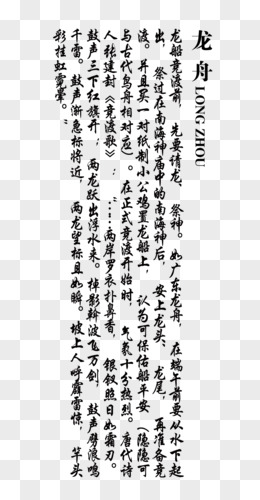 龙舟
LONG ZHOU
龙船竞渡前,先要请龙、祭神。如广东龙舟,在端午前要从水下起
出,祭过在南海神庙中的南海神后,安上龙头、龙尾,再准备竞
渡。并且买一对纸制小公鸡置龙船上,认为可保佑船平安(隐隐可
与古代鸟舟相对应)。在正式竞渡开始时,气象十分热烈。唐代诗
人张建封《竞渡歌》:“……两岸罗衣扑鼻香,银钗照日如霜刃。
鼓声三下红旗开,两龙跃出浮水来。棹影斡波飞万剑,鼓声劈浪鸣
千雷。鼓声渐急标将近,两龙望标且如瞬。坡上人呼霹雳惊,竿头
彩挂虹霓晕。”